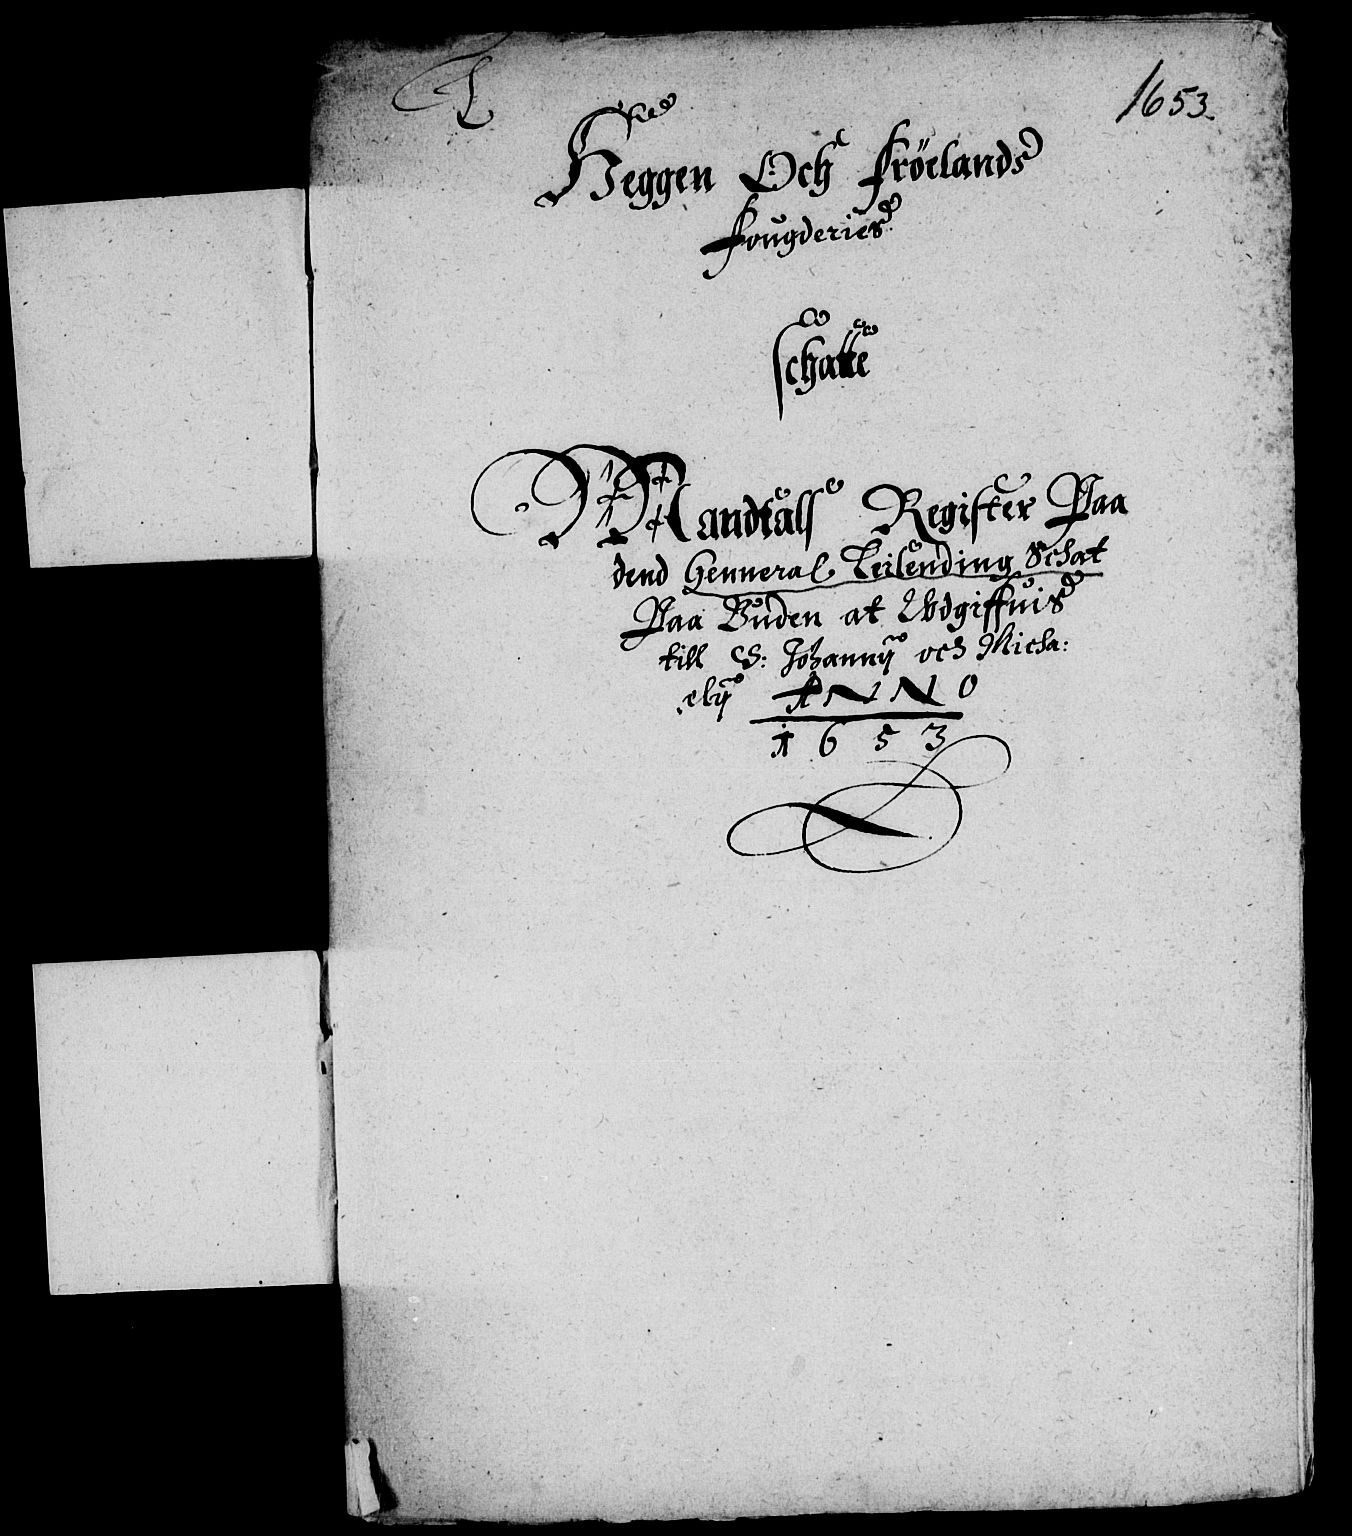 1653.
Heggen Och Frölands
Fougderies
Schatte
Mandtals Register Paa
dend Henneral Leilending Schat
Paa Buden at Wdgiffuis
till S: Johannij och Micha:
elij ANNO
1653